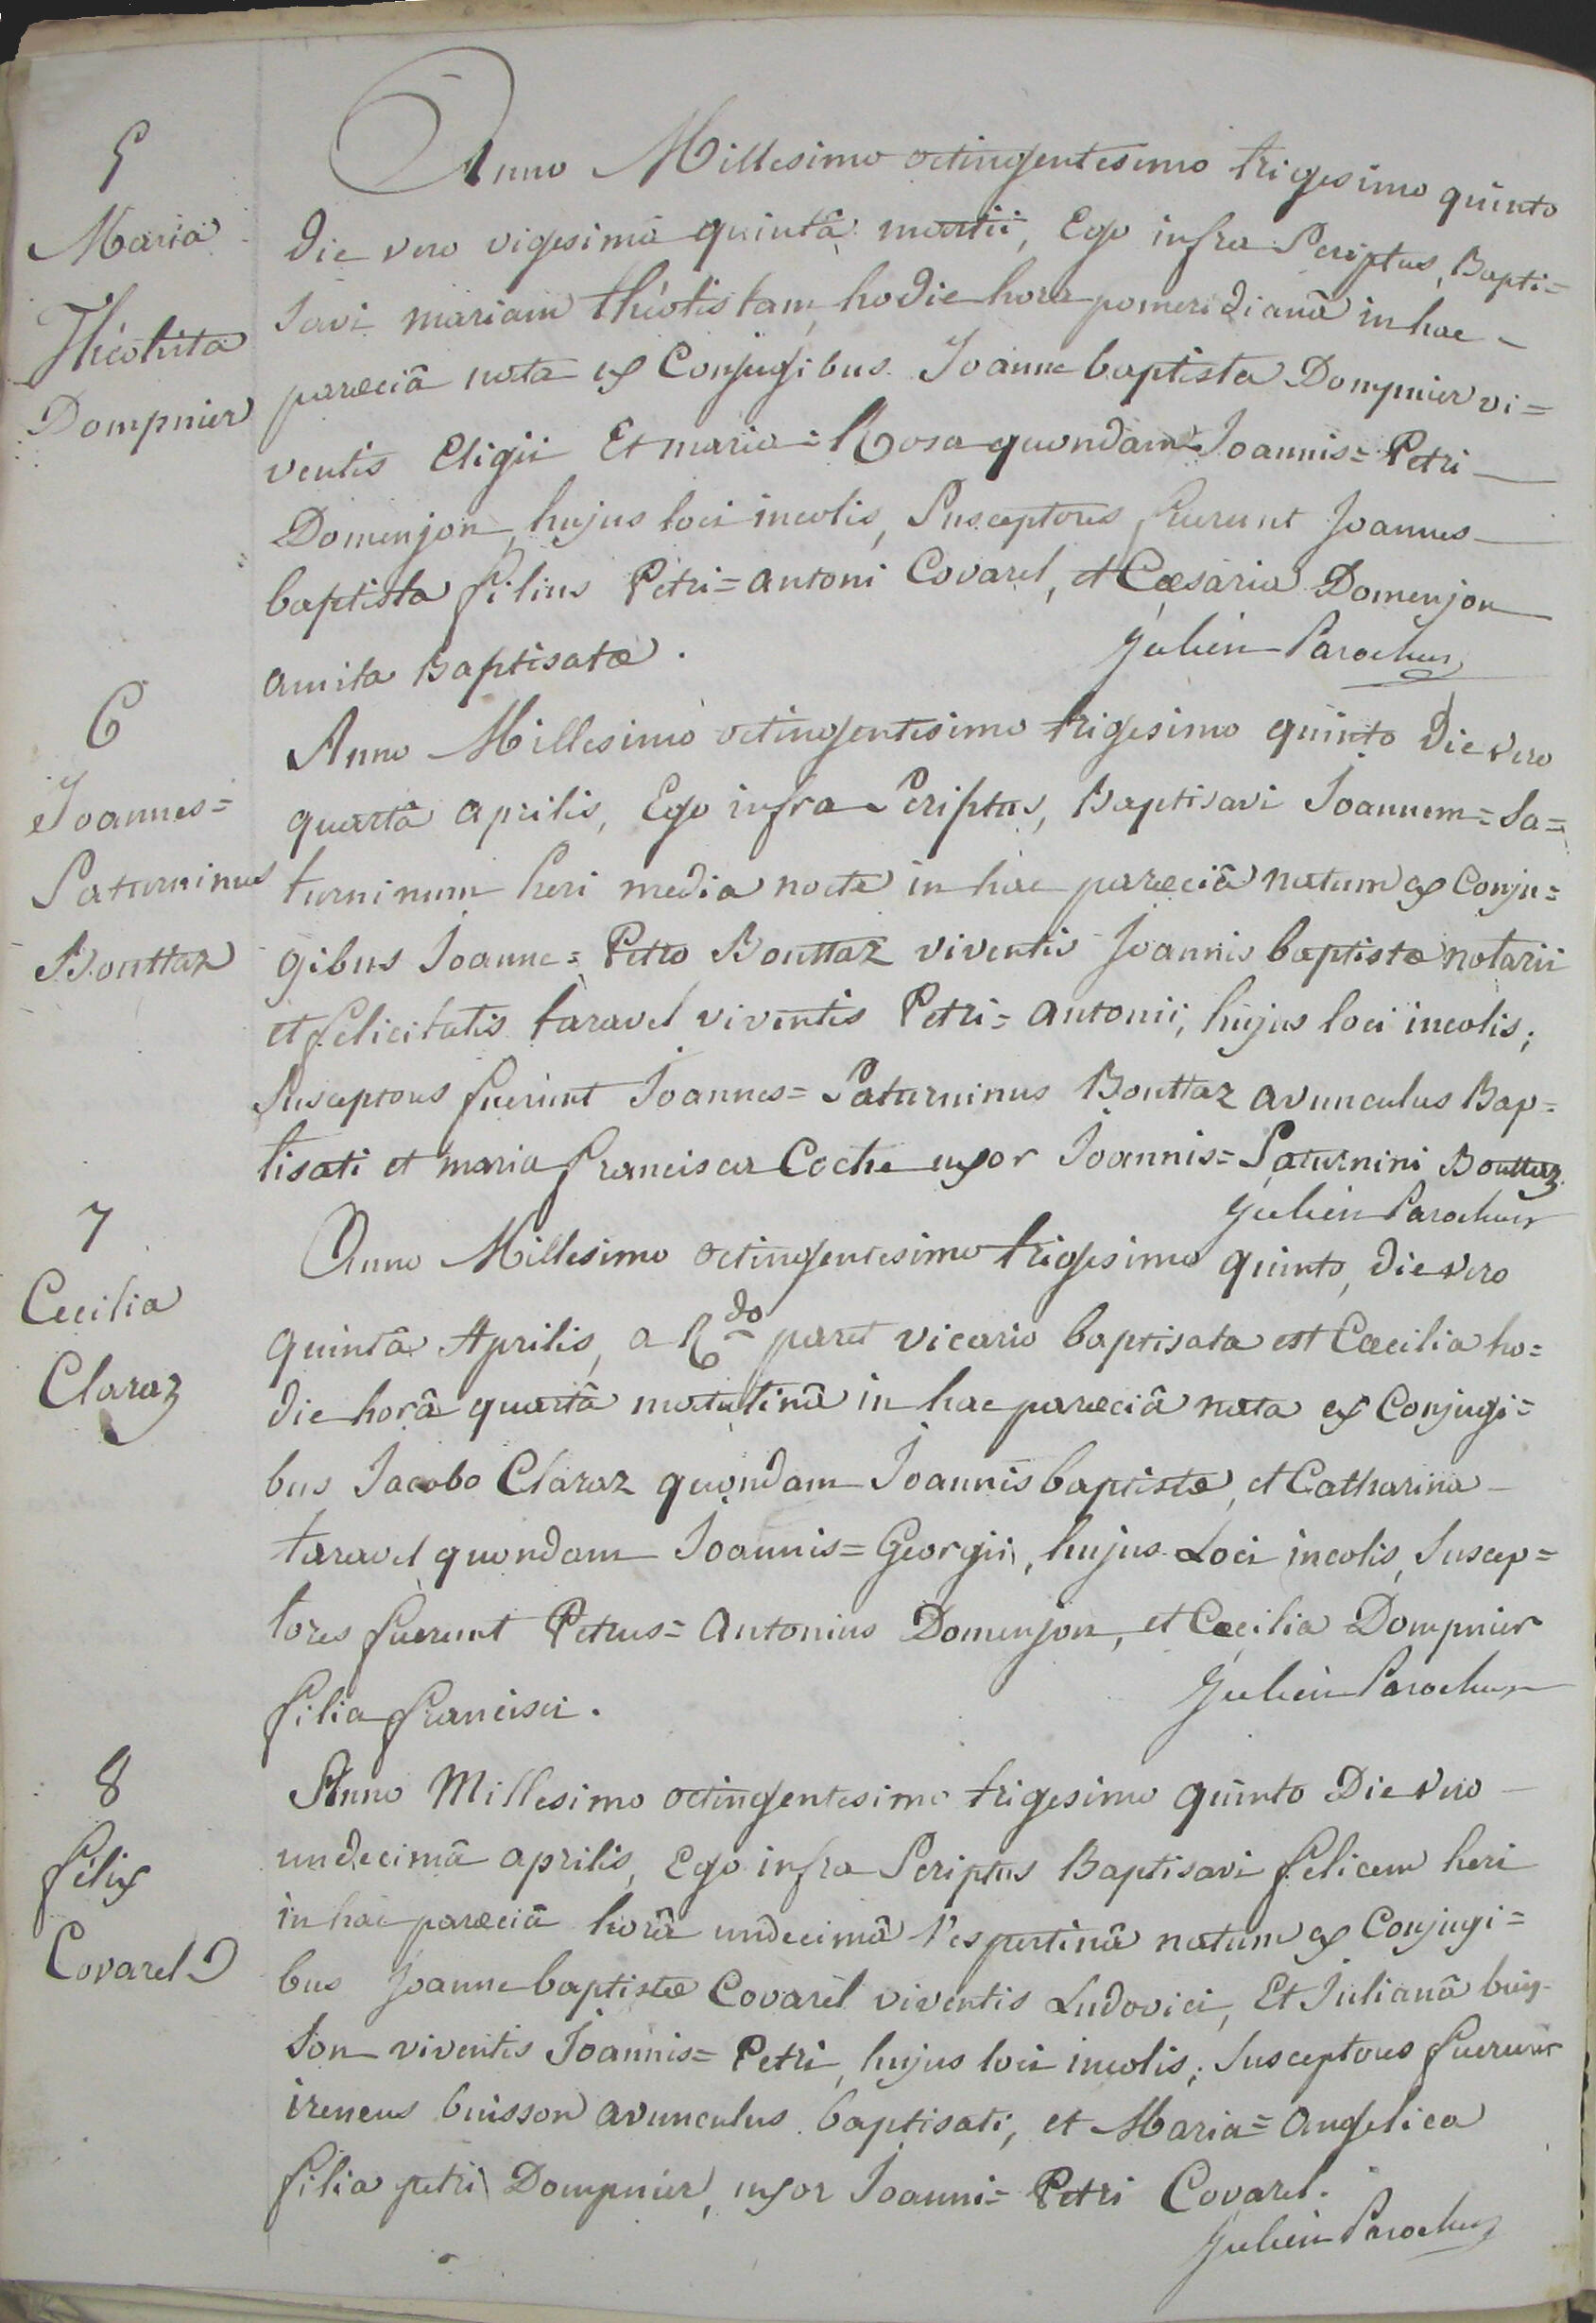 5
Maria
Théotista
Dompnier
Anno Millesimo octingentesimo trigesimo quinto
die vero vigesimâ quintâ martii, Ego infra Scriptus, Bapti=
savi mariam théotistam, hodie hora pomeridianâ in hac
parœciâ nata ex Conjugibus Joanne baptista Dompnier vi=
ventis Eligii Et maria=Rosa quondam Joannis=Petri
Domenjon, hujus loci incolis, Susceptores fuerunt Joannes
baptista filius Petri=antoni Covarel, et Cæsaria Domenjon
amita Baptisatæ.
Julien Parochus
6
Joannes=
Saturninus
Bouttaz
Anno Millesimo octingentesimo trigesimo quinto Die vero
quartâ aprilis, Ego infra Scriptus, Baptisavi Joannem=Sa=
turninum heri media nocte in hac parœciâ natum ex Conju=
gibus Joanne=Petro Bouttaz viventis Joannis baptistæ notarii
et felicitatis taravel viventis Petri=antonii, hujus loci incolis;
Susceptores fuerunt Joannes=Saturninus Bouttaz avunculus Bap=
tisati et maria francisca Coche uxor Joannis=Saturnini Bouttaz
Julien Parochus
7
Cecilia
Claraz
Anno Millesimo octingentesimo trigesimo quinto, die vero
quintâ Aprilis, a Rdo paret vicario baptisata est Cæcilia ho=
die horâ quartâ matutinâ in hac parœciâ nata ex Conjugi=
bus Jacobo Claraz quondam Joannis baptistæ, et Catharina
taravel quondam Joannis=Georgii, hujus Loci incolis, Suscep=
tores fuerunt Petrus=antonius Domenjon, et Cæcilia Dompnier
filia francisci.
Julien Parochus
8
félix
Covarel
Anno Millesimo octingentesimo trigesimo quinto Die vero
undecimâ aprilis, Ego infra Scriptus Baptisavi felicem heri
in hac parœciâ horâ undecimâ Vespertinâ natum ex Conjugi=
bus Joanne baptistæ Covarel viventis Ludovici, Et Julianâ buis-
son viventis Joannis=Petri, hujus loci incolis; Susceptores fuerunt
ireneus buisson avunculus baptisati, et Maria=angelica
filia petri Dompnier, uxor Joanni=Petri Covarel.
Julien Parochus